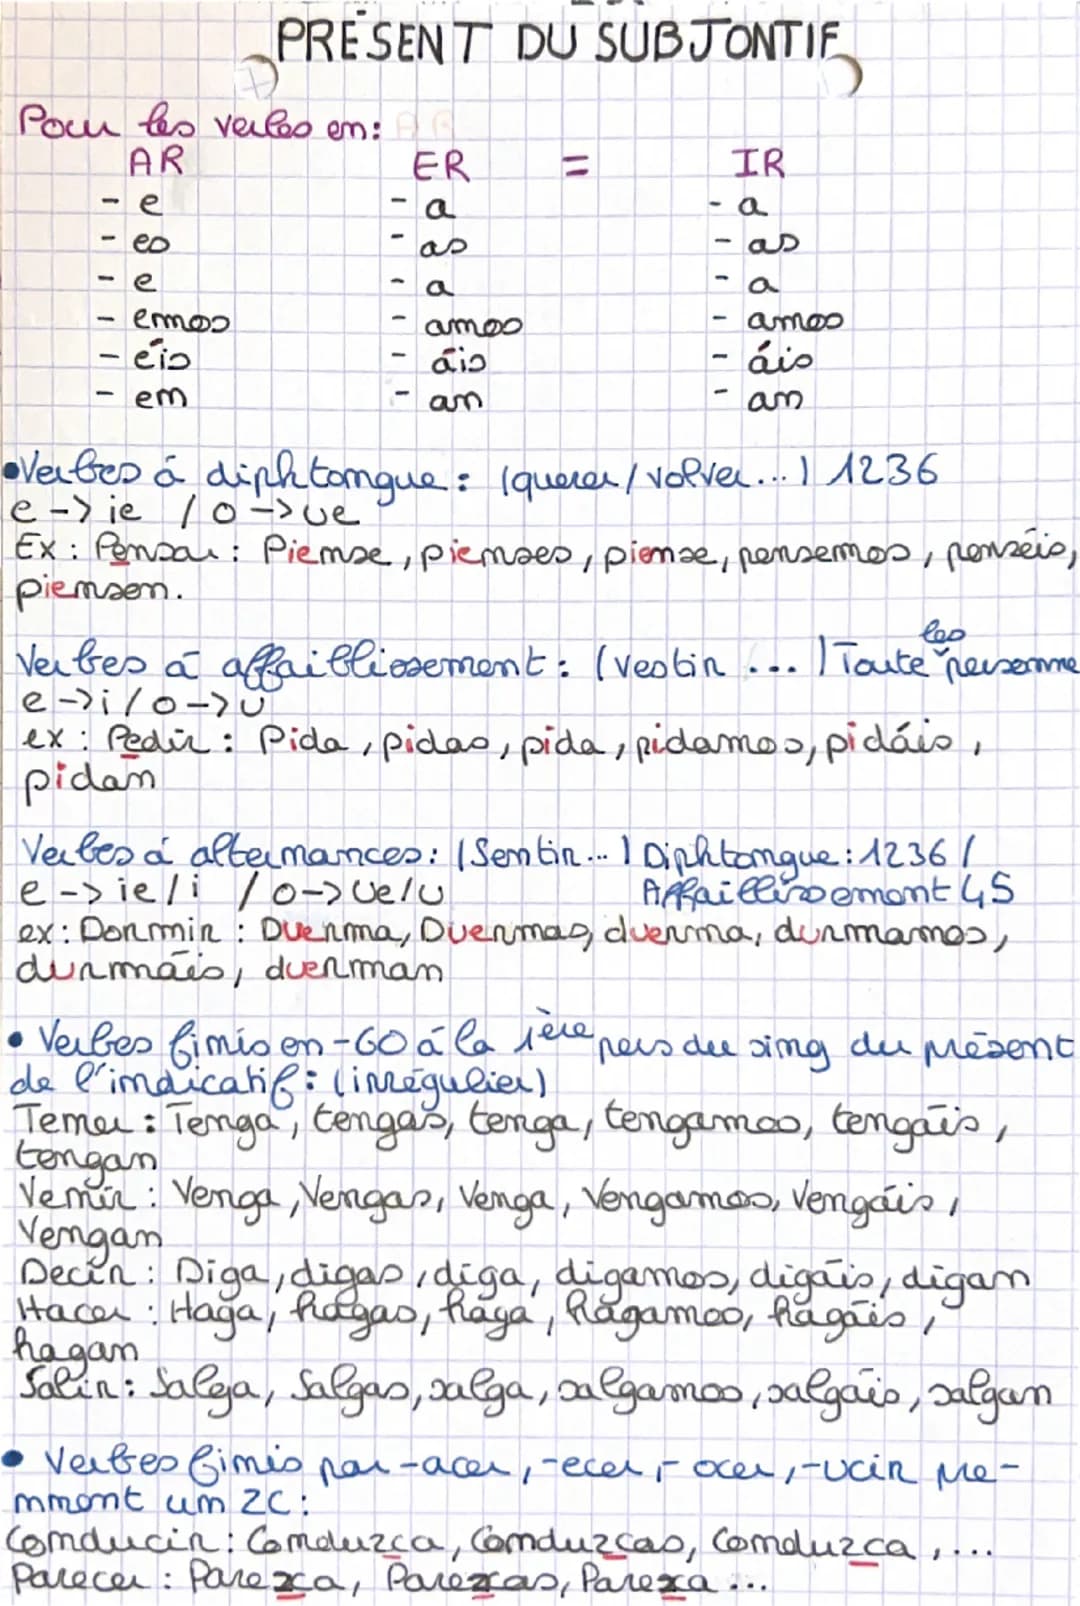 PRÉSENT DU SUBJONTIF
Pour les verbes en:
AR ER = IR
- e - a - a
- es - as - as
- e - a - a
- emos - amos - amos
- éis - áis - áis
- en - an - an
•Verbes á diphtongue : (querer / volver...) 1236
e -> ie / o -> ue
Ex : Pensar : Piense, pienses, piense, pensemos, penséis,
piensen.
Verbes á affaiblissement : (Vestir ...) Toute les personne
e -> i / o -> u
ex : Pedir : Pida, pidas, pida, pidamos, pidáis,
pidan
Verbes á alternances : (Sentir...) Diphtongue : 1236 /
e -> ie/i / o -> ue/u Affaiblissement 45
ex : Dormir : Duerma, Duermas, duerma, durmamos,
durmáis, duerman
• Verbes finis en -GO á la 1ère pers du sing du présent
de l'indicatif : (irrégulier)
Tener : Tenga, tengas, tenga, tengamos, tengáis,
tengan
Venir : Venga, Vengas, Venga, Vengamos, Vengáis,
Vengan
Decir : Diga, digas, diga, digamos, digáis, digan
Hacer : Haga, hagas, haga, hagamos, hagáis,
hagan
Salir : Salga, Salgas, salga, salgamos, salgáis, salgan
• Verbes finis par -acer, -ecer, -ocer, -ucir pre-
nnent un ZC :
Conducir : Conduzca, Conduzcas, Conduzca, ...
Parecer : Parezca, Parezcas, Parezca ...